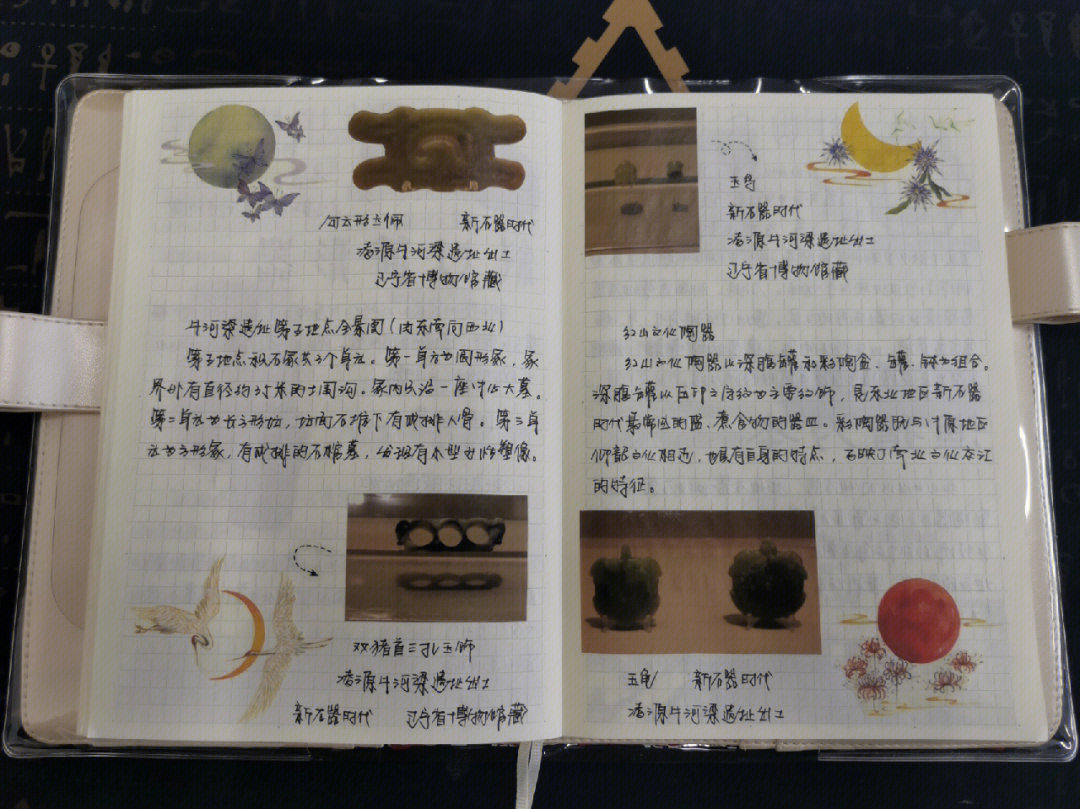 勾云形玉佩 新石器时代
凌源牛河梁遗址出土
辽宁省博物馆藏
牛河梁遗址第五地点全景图(由东南向西北)
第五地点积石冢共3个单元。第一单元为圆形冢,冢
界外有直径约35米的土围沟。冢内只设一座中心大墓。
第二单元为长方形坛,坛南石堆下有成排人骨。第三单
元为方形冢,有成排的石棺墓,有小型女性塑像。
双猪首三孔玉饰
凌源牛河梁遗址出土
新石器时代 辽宁省博物馆藏
玉龟
新石器时代
凌源牛河梁遗址出土
辽宁省博物馆藏
红山文化陶器
红山文化陶器以深腹罐和彩陶盆、罐、钵为组合。
深腹罐以压印之字纹为主要纹饰,是东北地区新石器
时代最常见的盛、煮食物的器皿。彩陶器既与中原地区
仰韶文化相近,也具有自身的特点,反映了南北文化交汇
的特征。
玉龟 新石器时代
凌源牛河梁遗址出土